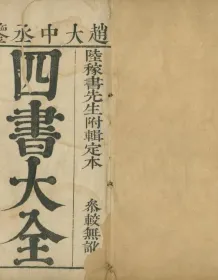 趙大中丞鑒
陸稼書先生附輯定本
四書大全
叅較無訛